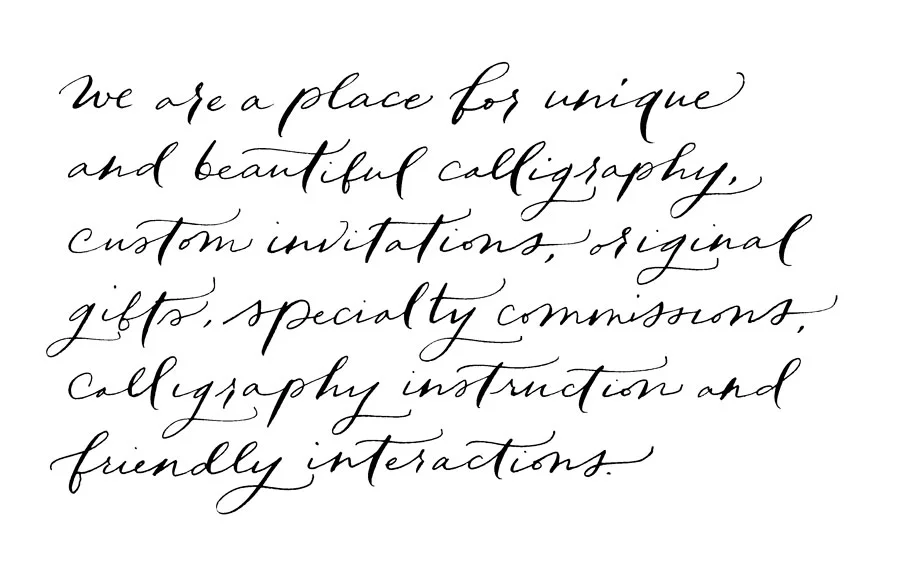 We are a place for unique
and beautiful calligraphy,
custom invitations, original
gifts, specialty commissions,
calligraphy instruction and
friendly interactions.